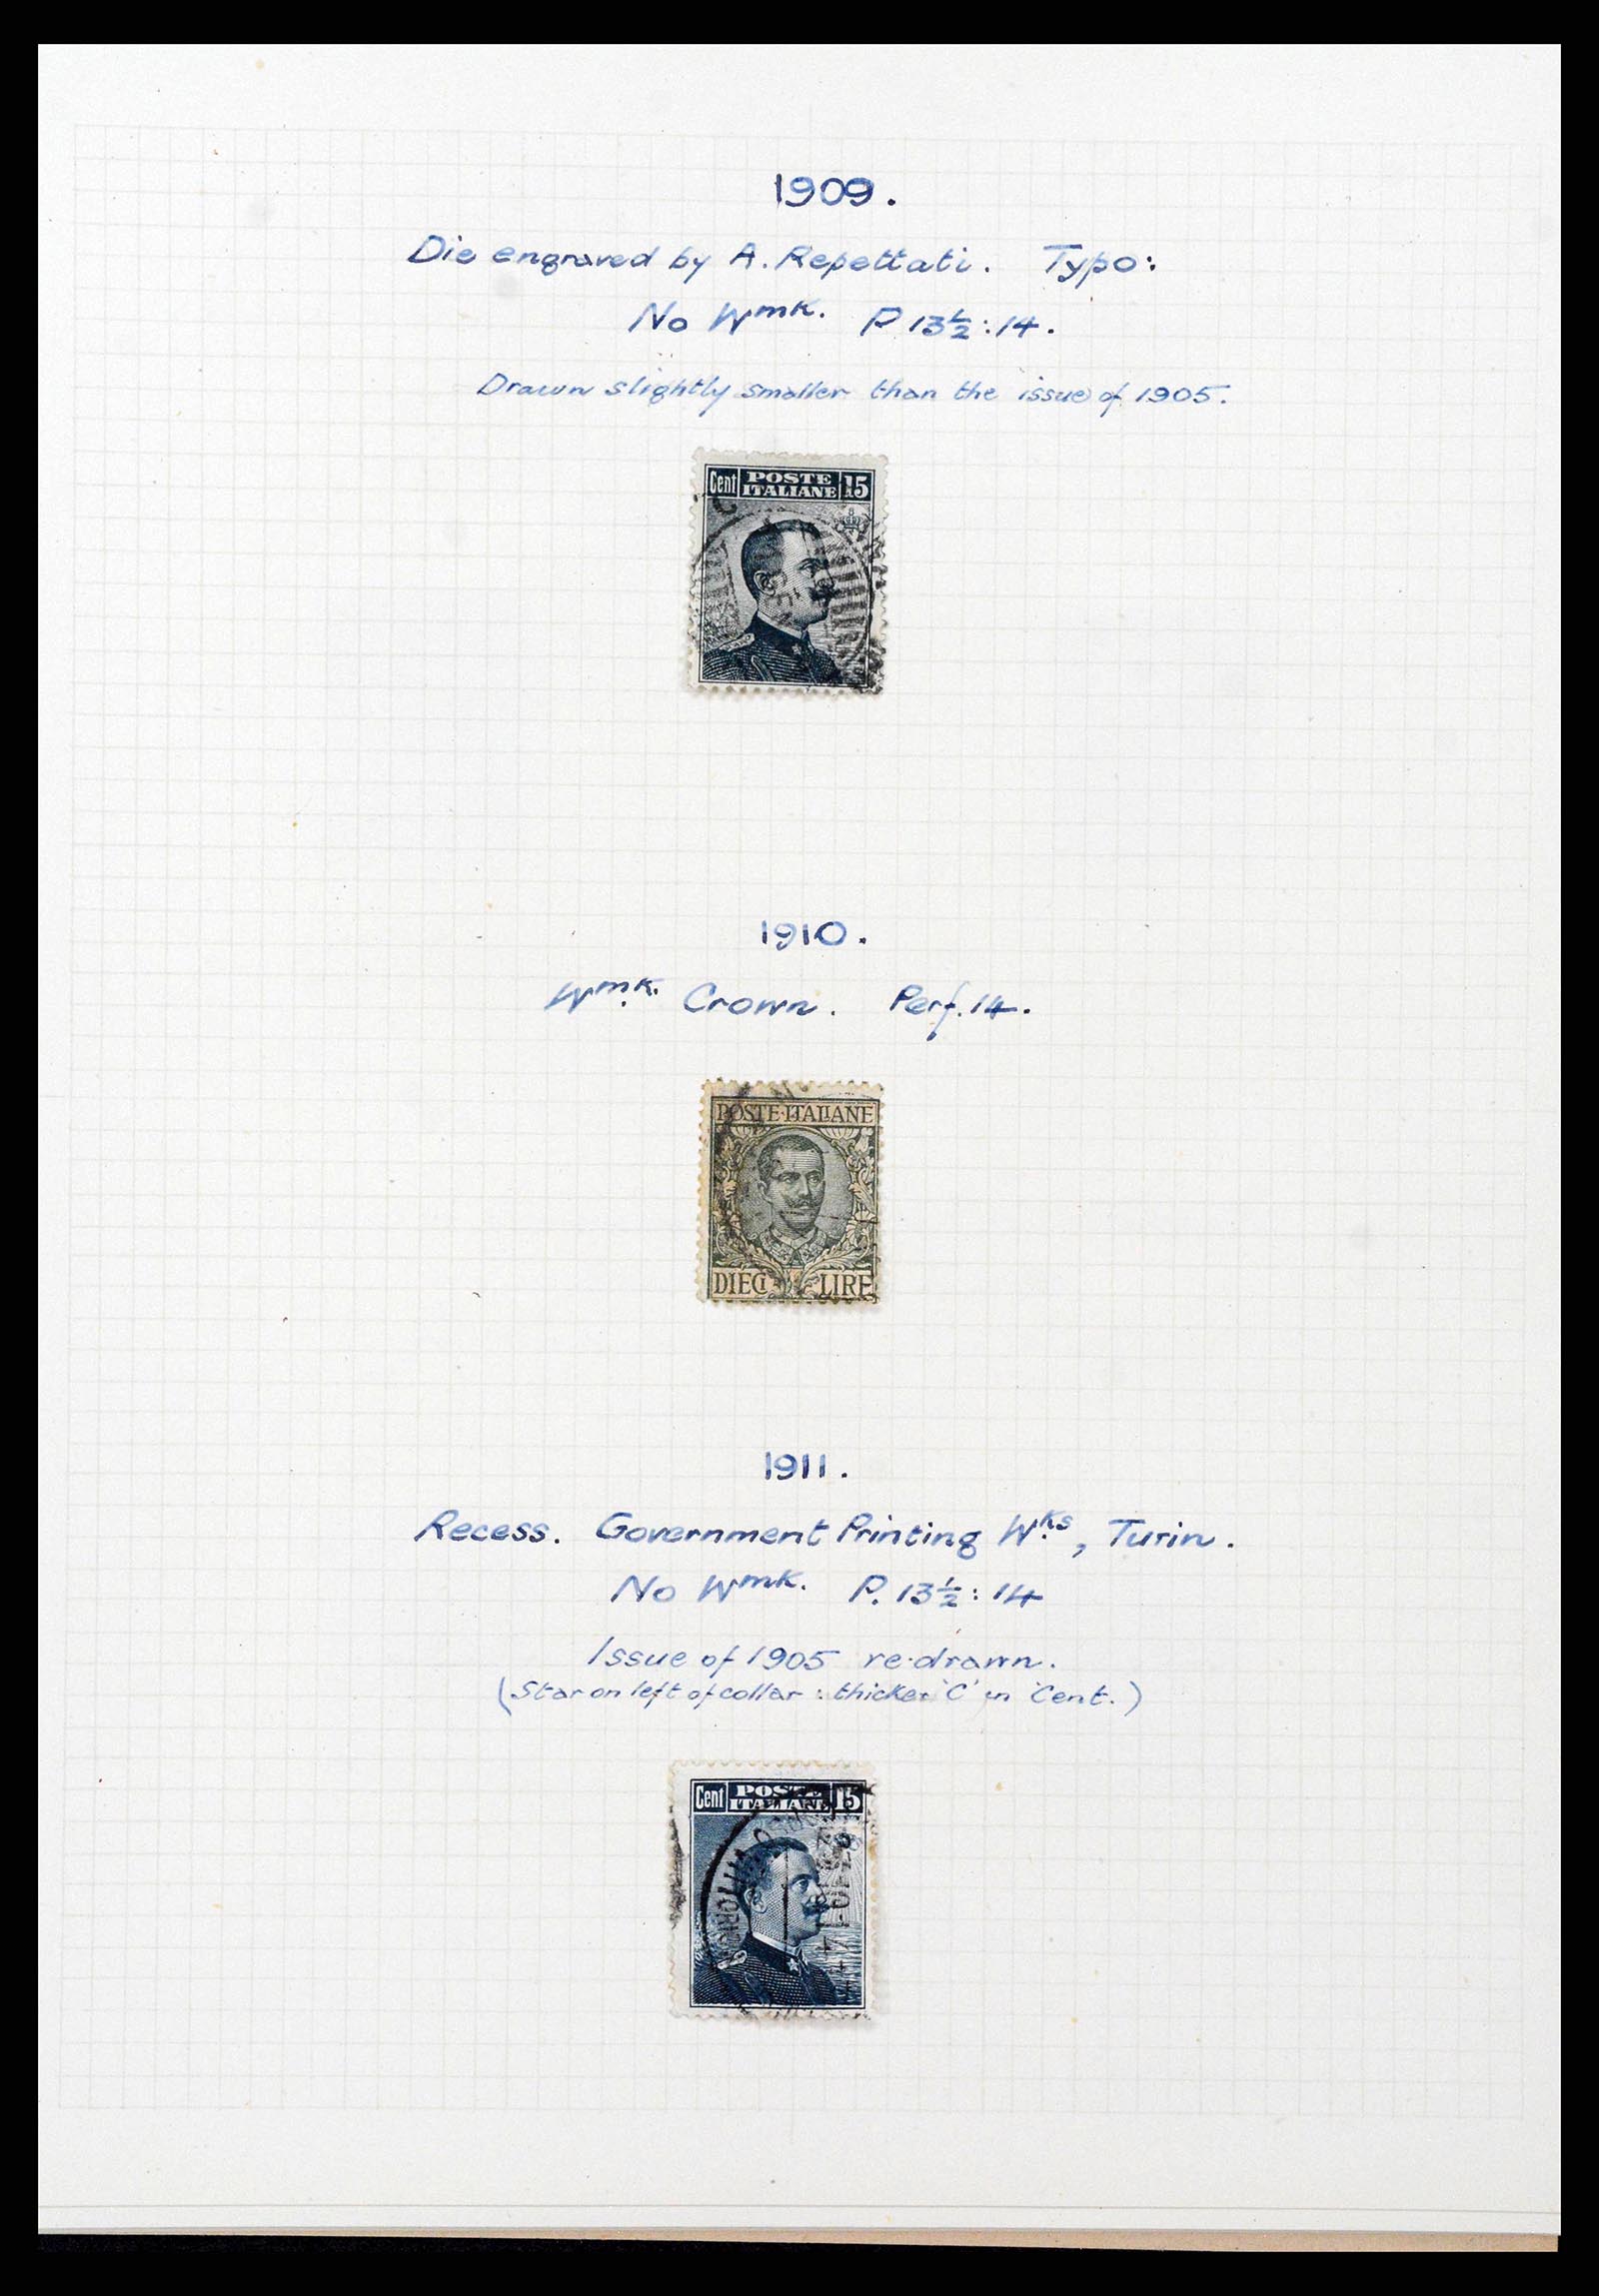 1909.
Die engraved by A. Repettati. Typo:
No Wmk. P 13½:14.
Drawn slightly smaller than the issue of 1905.
Cent POSTE ITALIANE 15
1910.
Wmk. Crown. Perf. 14.
POSTE·ITALIANE
DIECI LIRE
1911.
Recess. Government Printing Wks, Turin.
No Wmk. P. 13½:14
Issue of 1905 re-drawn.
(Star on left of collar: thicker 'C' in 'Cent.)
Cent POSTE ITALIANE 15